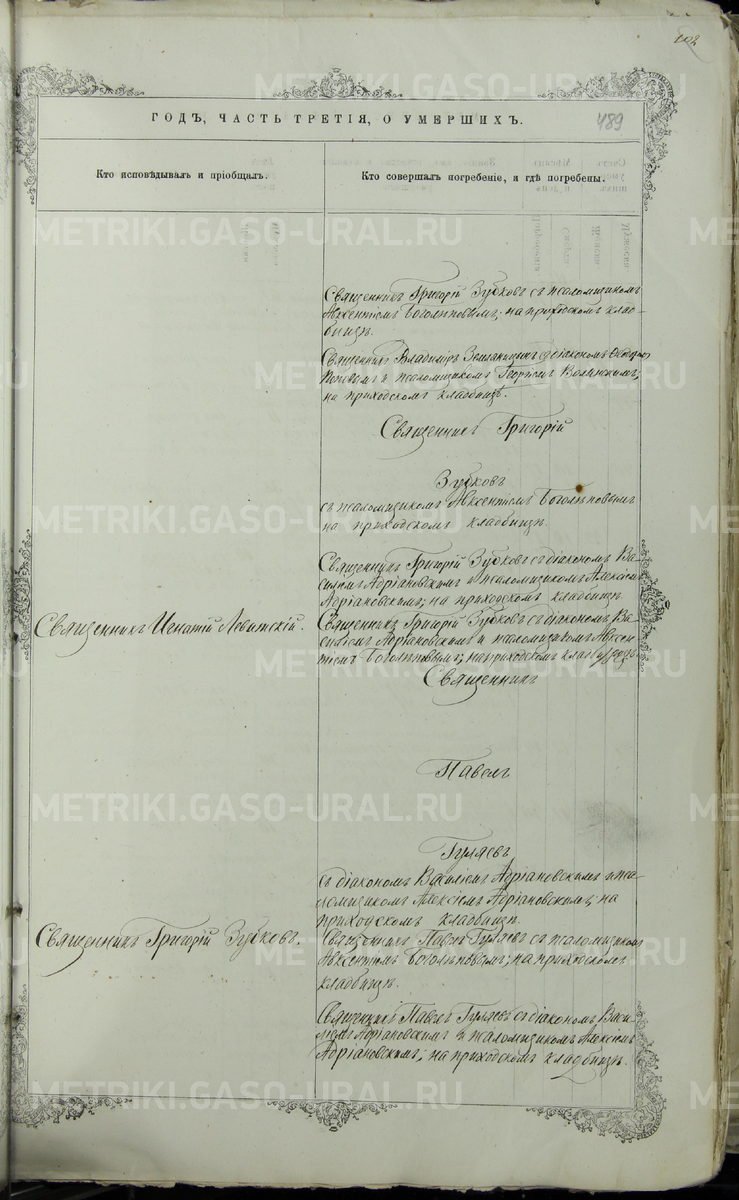 102
ГОДЪ, ЧАСТЬ ТРЕТІЯ, О УМЕРШИХЪ.
489
Кто исповѣдывалъ и пріобщалъ.
Кто совершалъ погребеніе, и гдѣ погребены.
Священникъ Григорій Зубковъ съ псаломщикомъ
Авксентіемъ Боголѣповымъ; на приходскомъ клад-
бищѣ.
Священникъ Владиміръ съ діакономъ
и псаломщикомъ Георгіемъ
на приходскомъ кладбищѣ.
Священникъ Григорій
Зубковъ
съ псаломщикомъ Авксентіемъ Боголѣповымъ
на приходскомъ кладбищѣ.
Священникъ Григорій Зубковъ съ діакономъ Ва-
силіемъ Адріановскимъ и псаломщикомъ Алексіемъ
Адріановскимъ; на приходскомъ кладбищѣ.
Священникъ Игнатій Левитскій.
Священникъ Григорій Зубковъ съ діакономъ Ва-
силіемъ Адріановскимъ и псаломщикомъ Авксен-
тіемъ Боголѣповымъ; на приходскомъ кладбищѣ.
Священникъ
Павелъ
Гуляевъ
съ діакономъ Василіемъ Адріановскимъ и пса-
ломщикомъ Алексіемъ Адріановскимъ; на
приходскомъ кладбищѣ.
Священникъ Григорій Зубковъ.
Священникъ Павелъ Гуляевъ съ псаломщикомъ
Авксентіемъ Боголѣповымъ; на приходскомъ
кладбищѣ.
Священникъ Павелъ Гуляевъ съ діакономъ Васи-
ліемъ Адріановскимъ и псаломщикомъ Алексіемъ
Адріановскимъ; на приходскомъ кладбищѣ.
METRIKI.GASO-URAL.RU